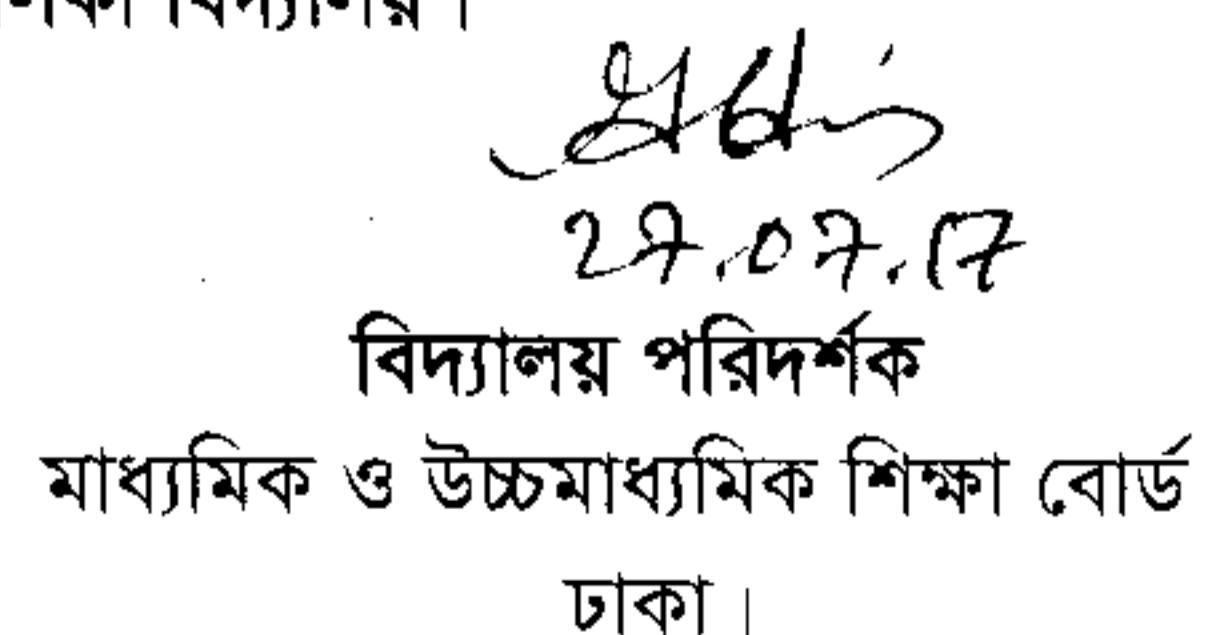 বিদ্যালয়।
27.07.17
বিদ্যালয় পরিদর্শক
মাধ্যমিক ও উচ্চমাধ্যমিক শিক্ষা বোর্ড
ঢাকা।